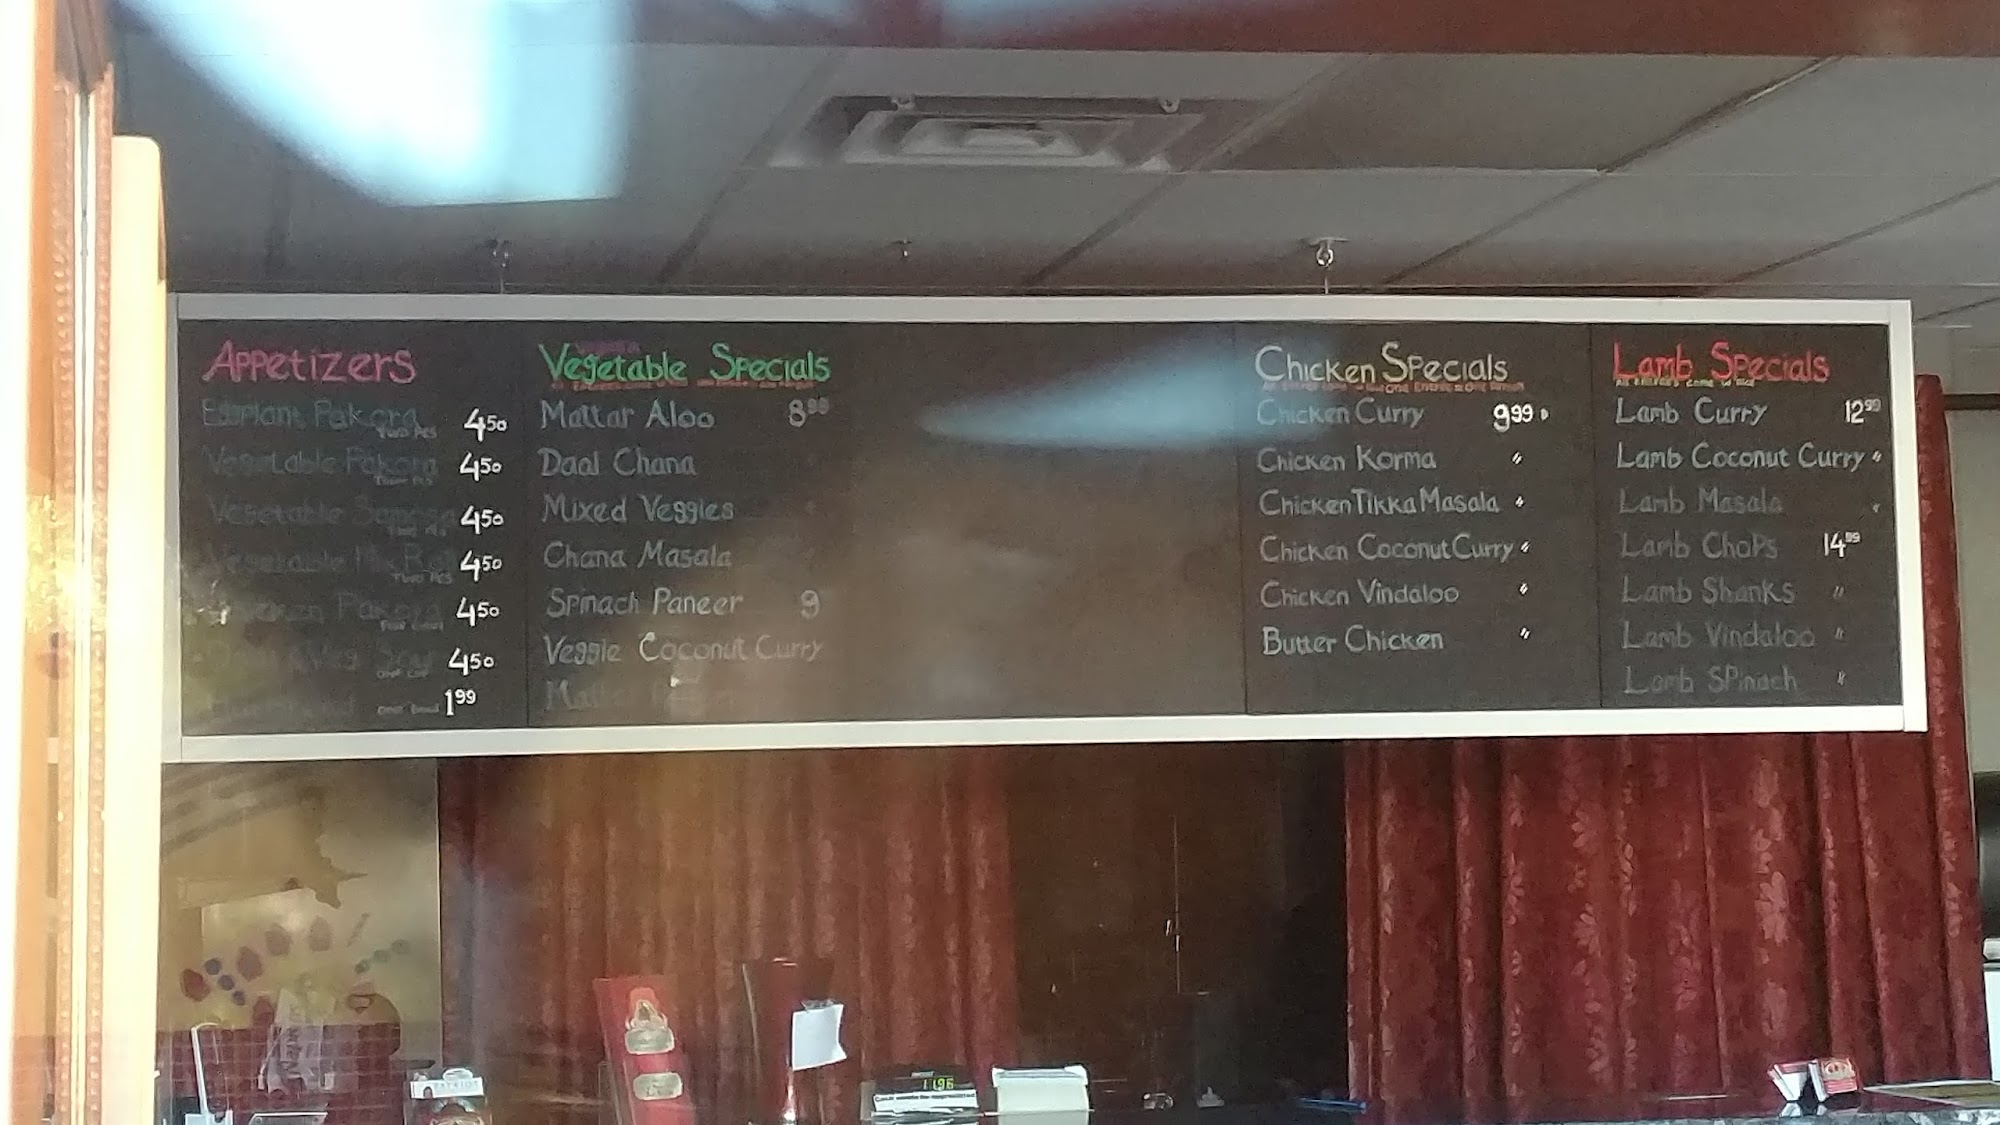 Appetizers
Eggplant Pakora 4.50
Two Pcs
Vegetable Pakora 4.50
Vegetable Samosa 4.50
Vegetable Mix 4.50
Two Pcs
Pakora 4.50
Veg 4.50
1.99
Vegetable Specials
Mattar Aloo 8.99
Daal Chana
Mixed Veggies
Chana Masala
Spinach Paneer 9
Veggie Coconut Curry
Chicken Specials
Chicken Curry 9.99
Chicken Korma "
Chicken Tikka Masala "
Chicken Coconut Curry "
Chicken Vindaloo "
Butter Chicken "
Lamb Specials
Lamb Curry 12.99
Lamb Coconut Curry "
Lamb Masala "
Lamb Chops 14.99
Lamb Shanks "
Lamb Vindaloo "
Lamb Spinach "